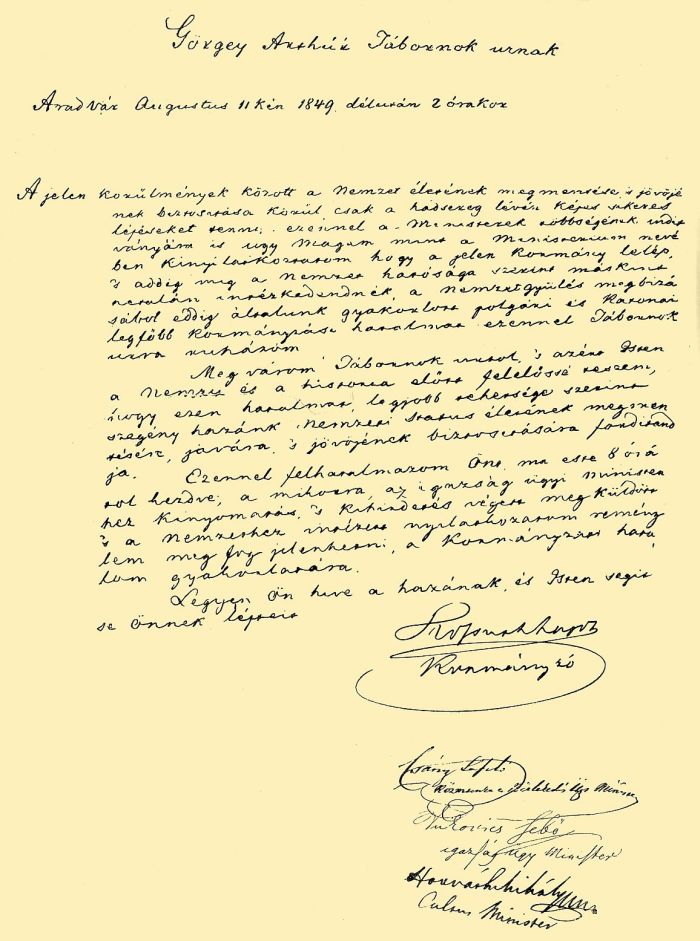 Görgey Arthúr Tábornok urnak
Aradvár Augustus 11 kén 1849. délután 2 órakor
A jelen körülmények között a Nemzet életének megmentése, 's jövőjé
nek biztosítása körül csak a hadsereg lévén képes sikeres
lépéseket tenni; ezennel a Ministerek többségének indít
ványára is ugy magam mint a Ministerium nevé
ben kinyilatkoztatom hogy a jelen Kormány lelép,
's addig míg a Nemzet hatósága szerint máskint
netalán intézkedendnék, a nemzetgyülés megbizá
sából eddig általunk gyakorlott polgári és katonai
legfőbb Kormányzási hatalmat ezennel Tábornok
urra ruházom
Meg várom Tábornok urtol, 's azért Isten
a Nemzet és a historia előtt felelőssé teszem,
hogy ezen hatalmat, legjobb tehetsége szerint
szegény hazánk Nemzeti status életének megmen
tésére, javára, 's jövőjének biztositására forditand
ja.
Ezennel felhatalmazom Önt, ma este 8 órá
tol kezdve, a mikorra, az igazság ügyi Minister
hez kinyomatás, 's kihirdetés végett meg küldött
's a Nemzethez intézett nyilatkozatom remény
lem meg fog jelenhetni, a Kormányzat hata
lom gyakorlatára.
Legyen Ön hive a hazának, és Isten segit
se Önnek lépteit
Kossuth Lajos
Kormányzó
Csány László
Közmunka s Közlekedés Ügyi Minister
Vukovics Sebő
igazság ügy Minister
Horváth Mihály
Cultus Minister